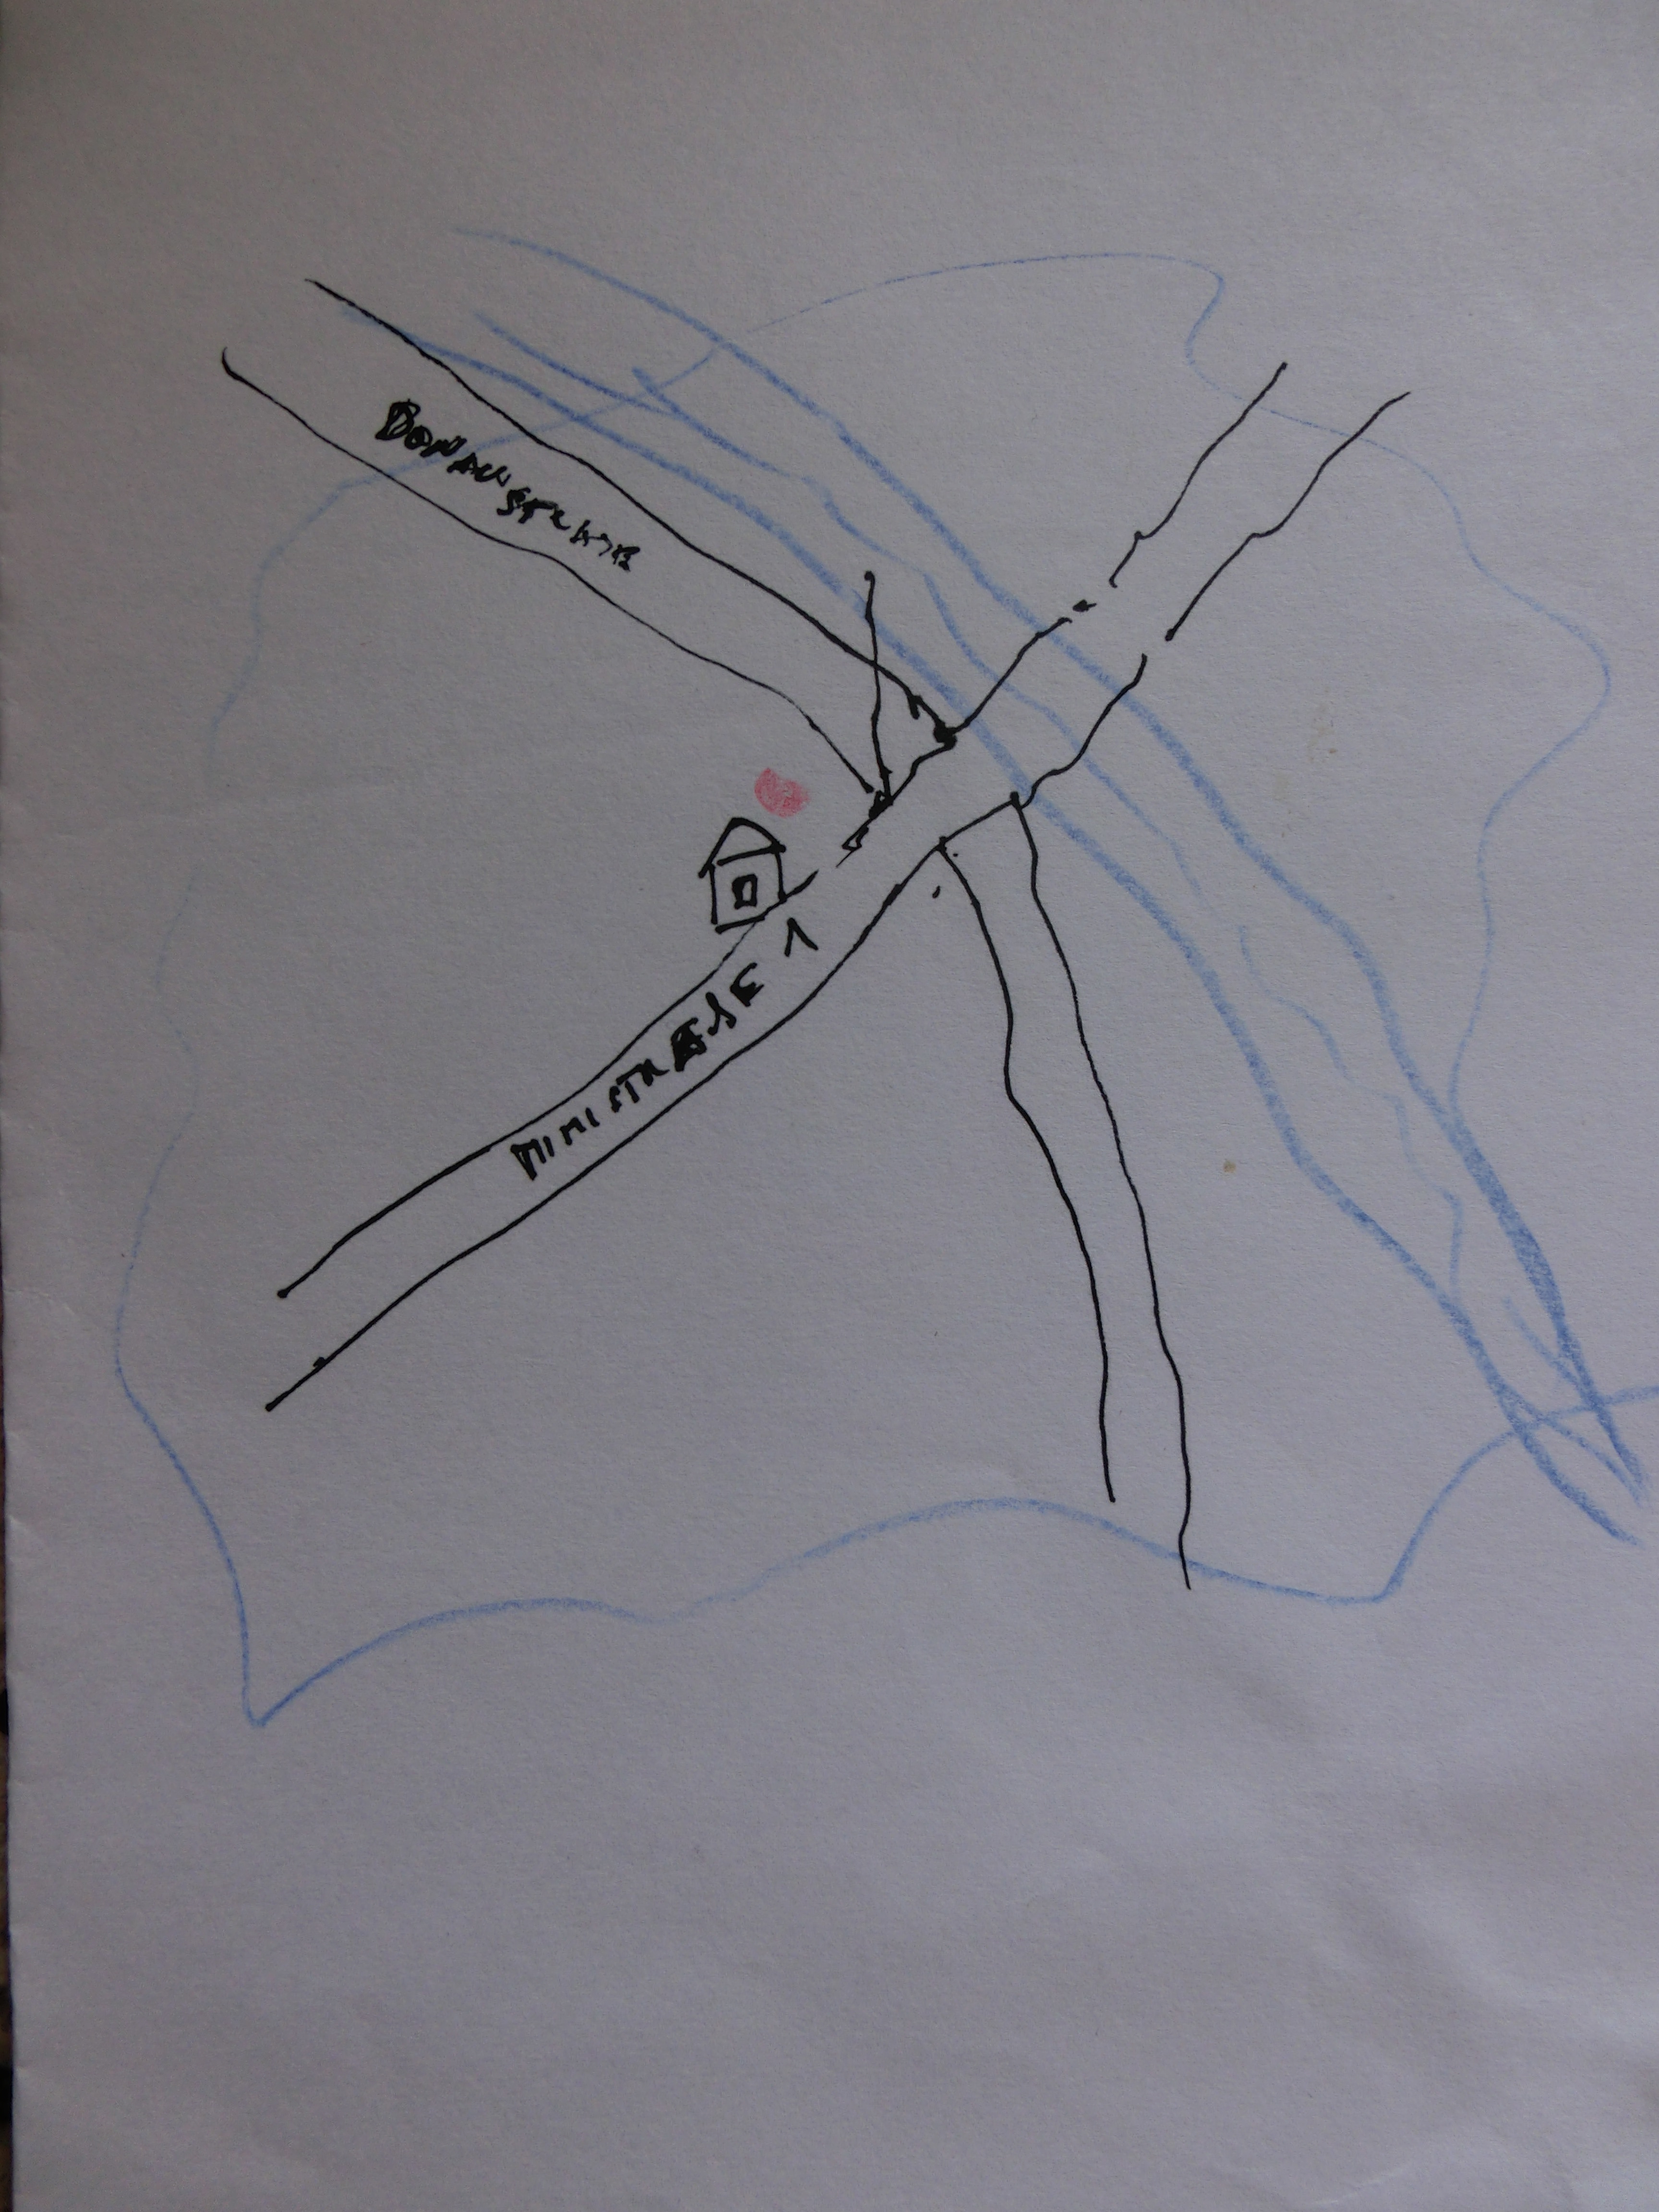 DONAUSTRASSE
MINISTRASSE 1